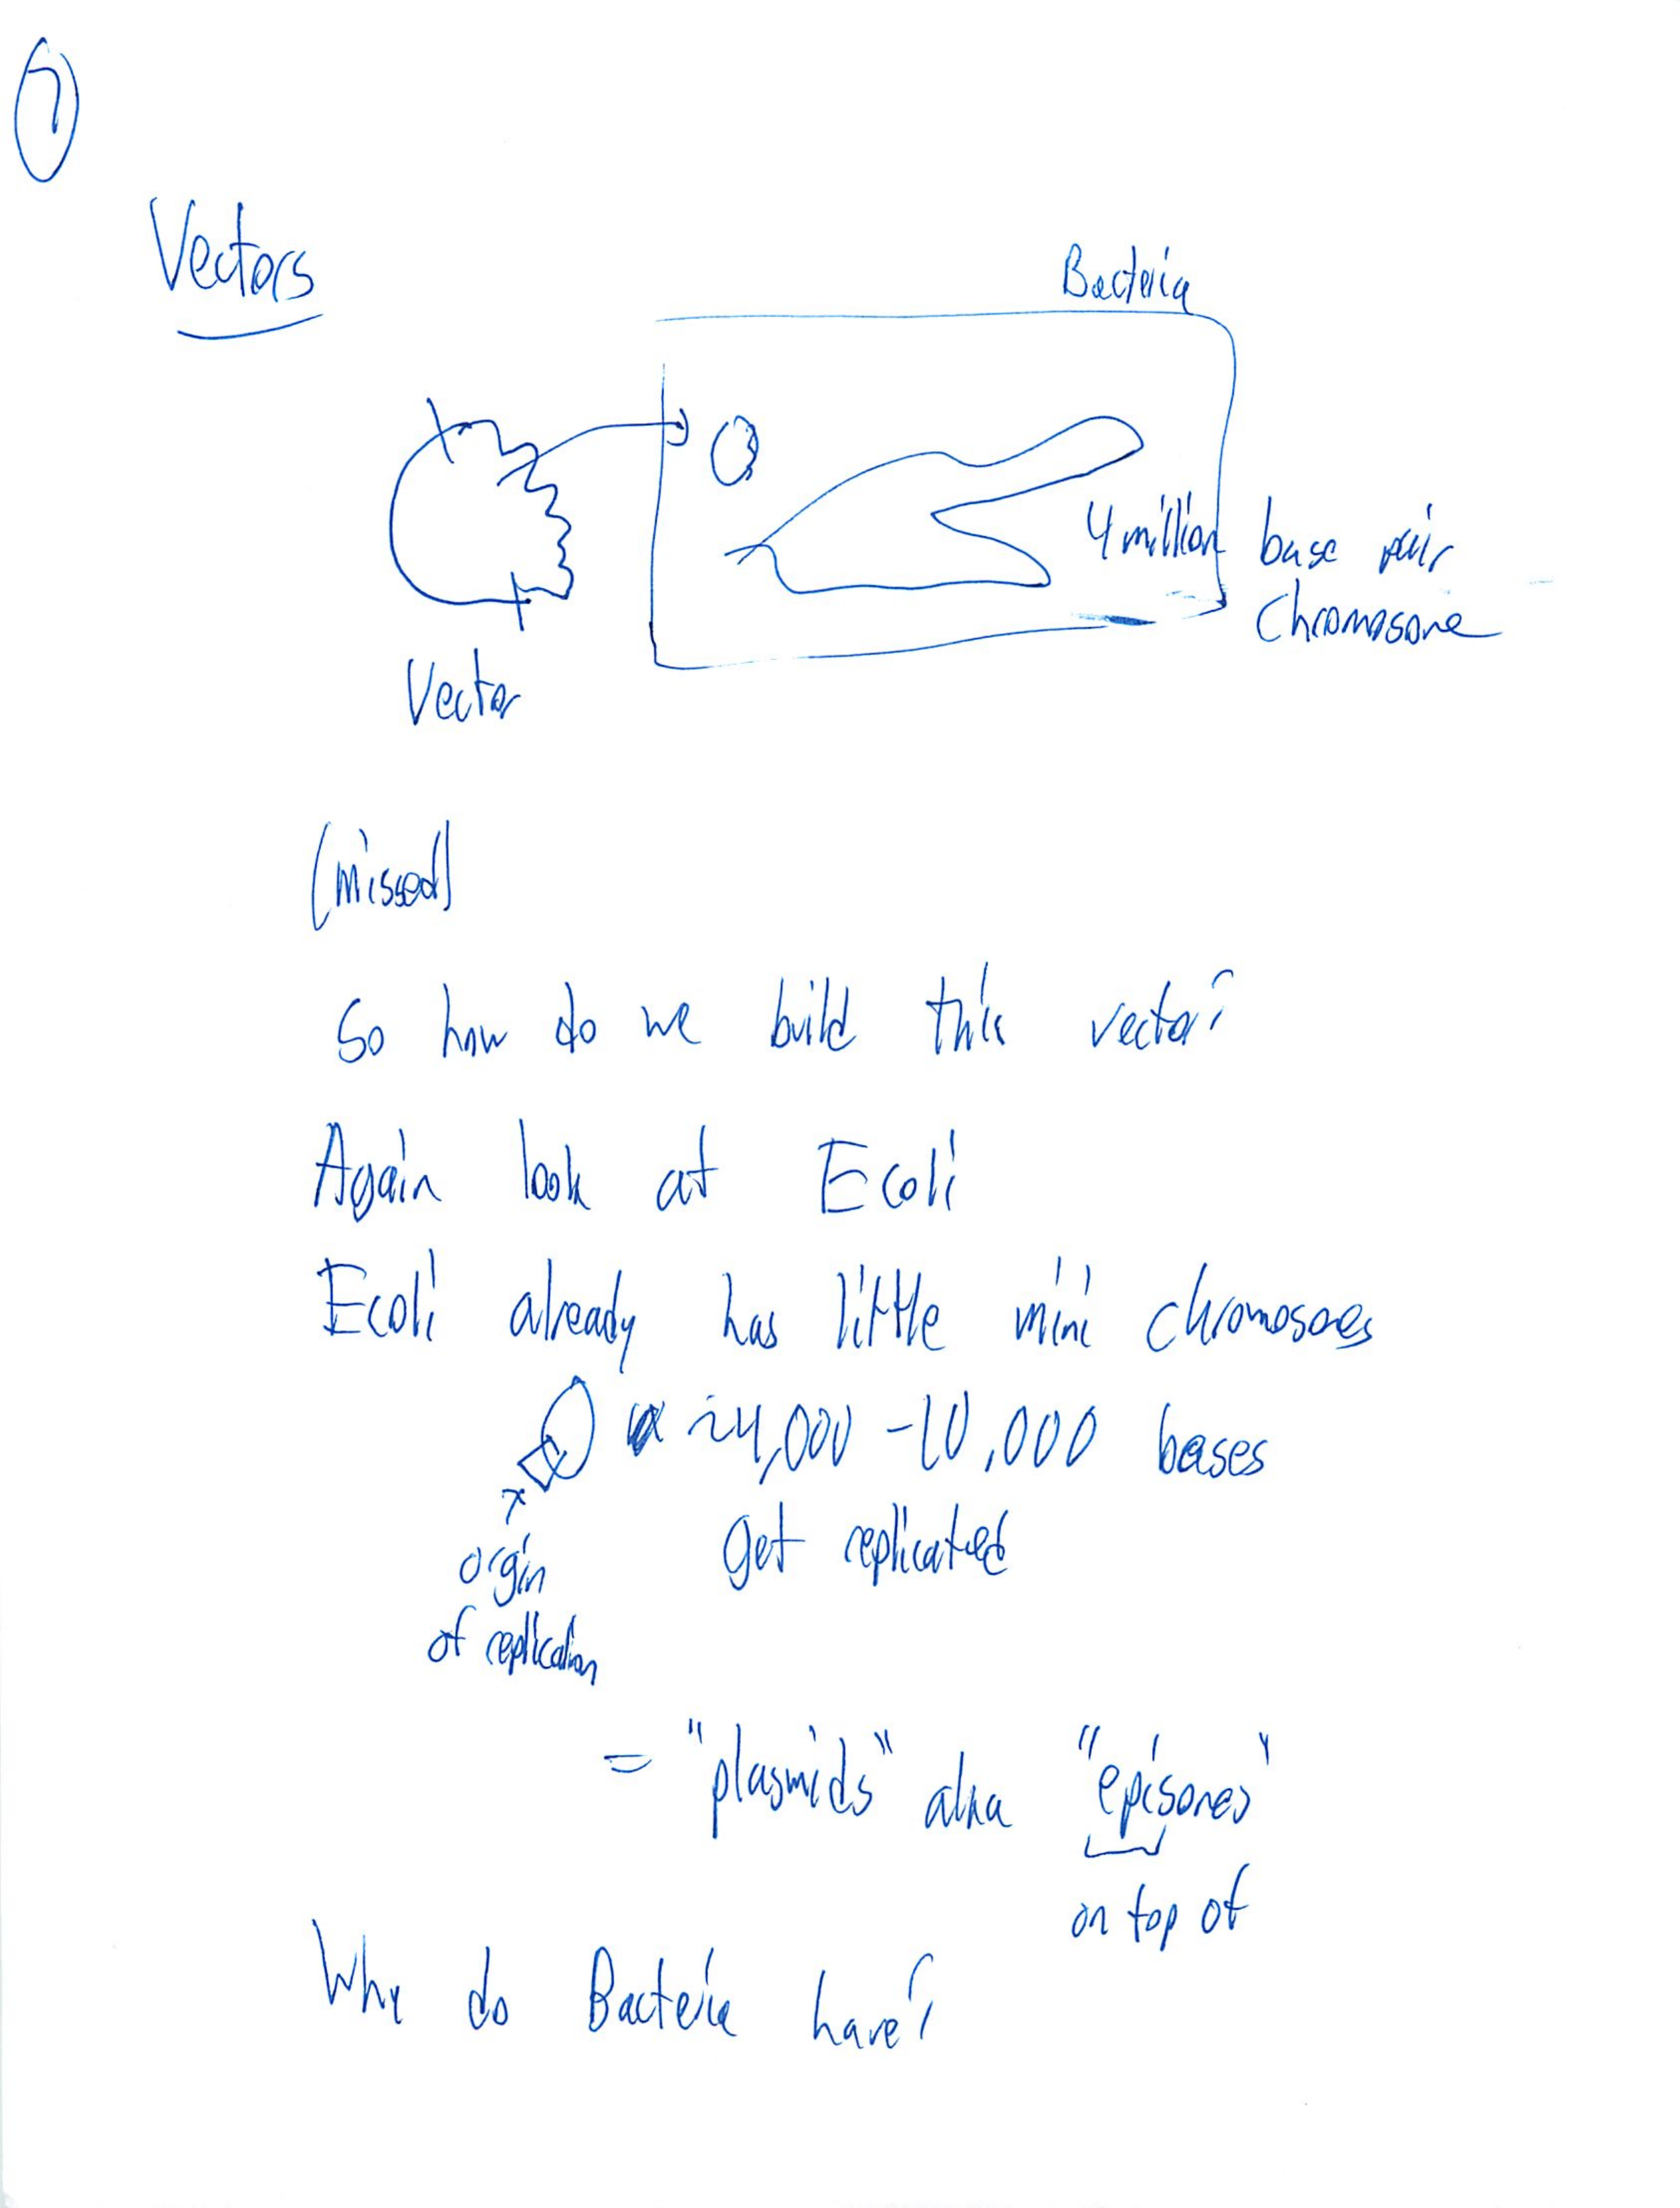 7
Vectors
Bacteria
4 million base pair
Chromosome
Vector
(missed)
So how do we build this vector?
Again look at Ecoli
Ecoli already has little mini chromosomes
~4,000 - 10,000 bases
get replicated
orgin
of replication
= "plasmids" aka "episomes"
on top of
Why do Bacteria have?